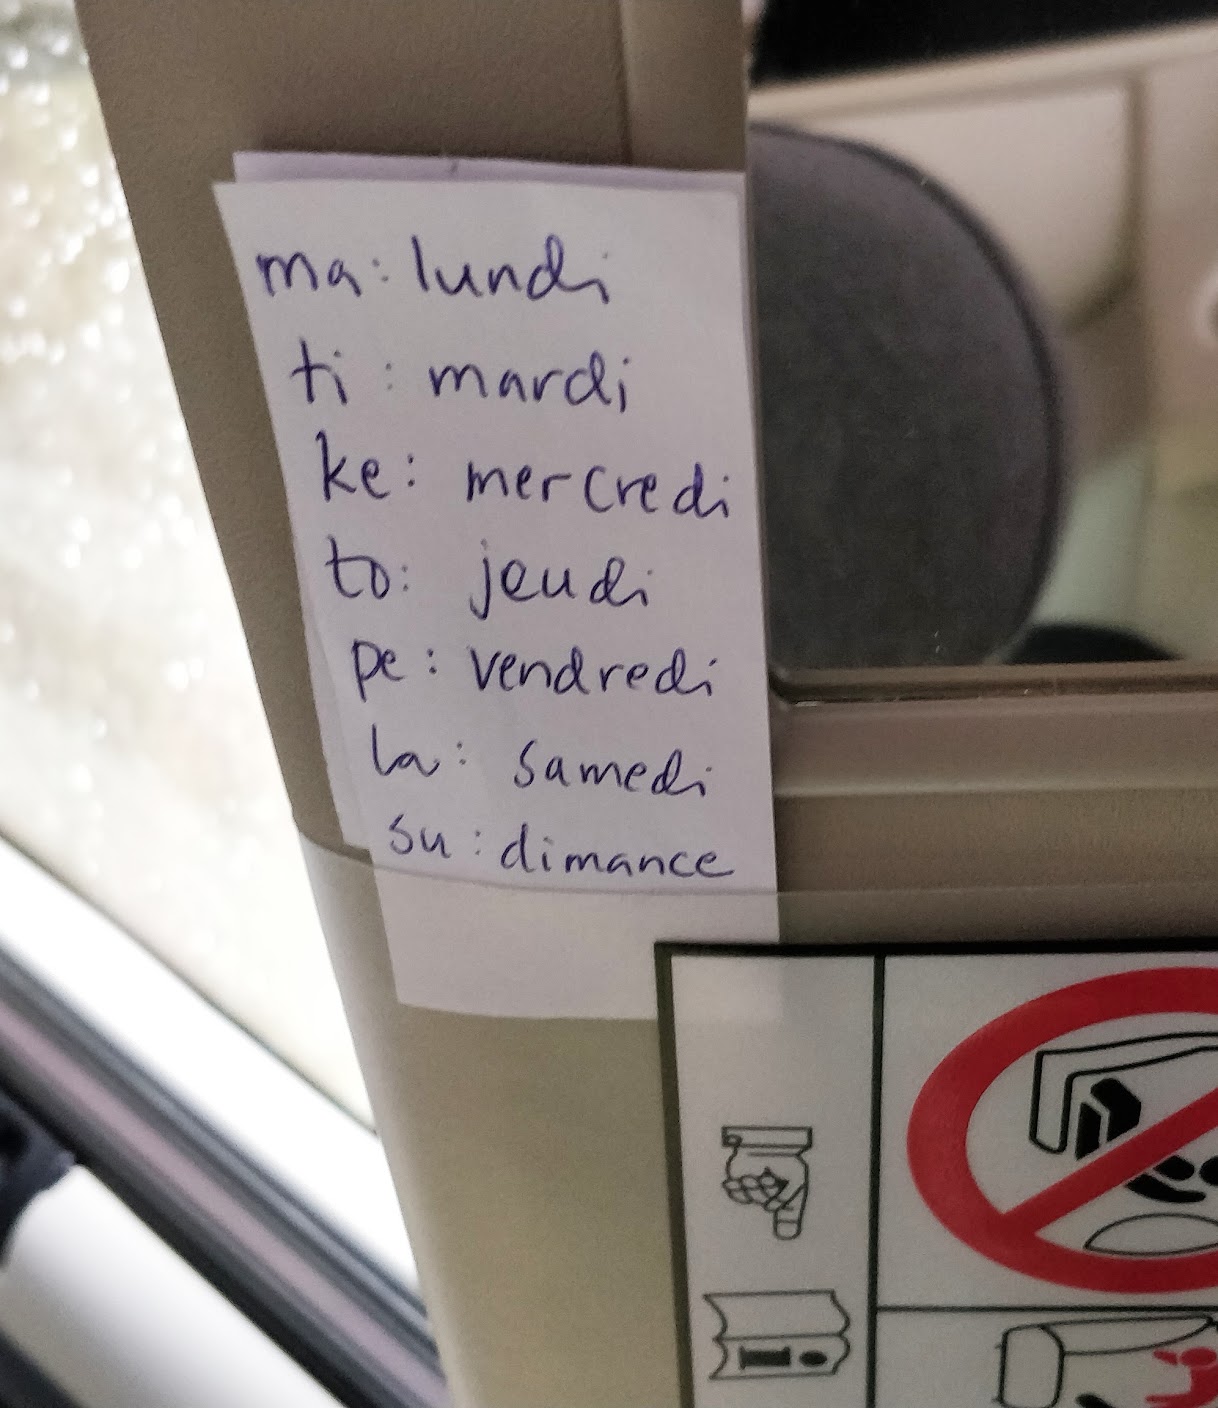 ma: lundi
ti: mardi
ke: mercredi
to: jeudi
pe: vendredi
la: samedi
su: dimance